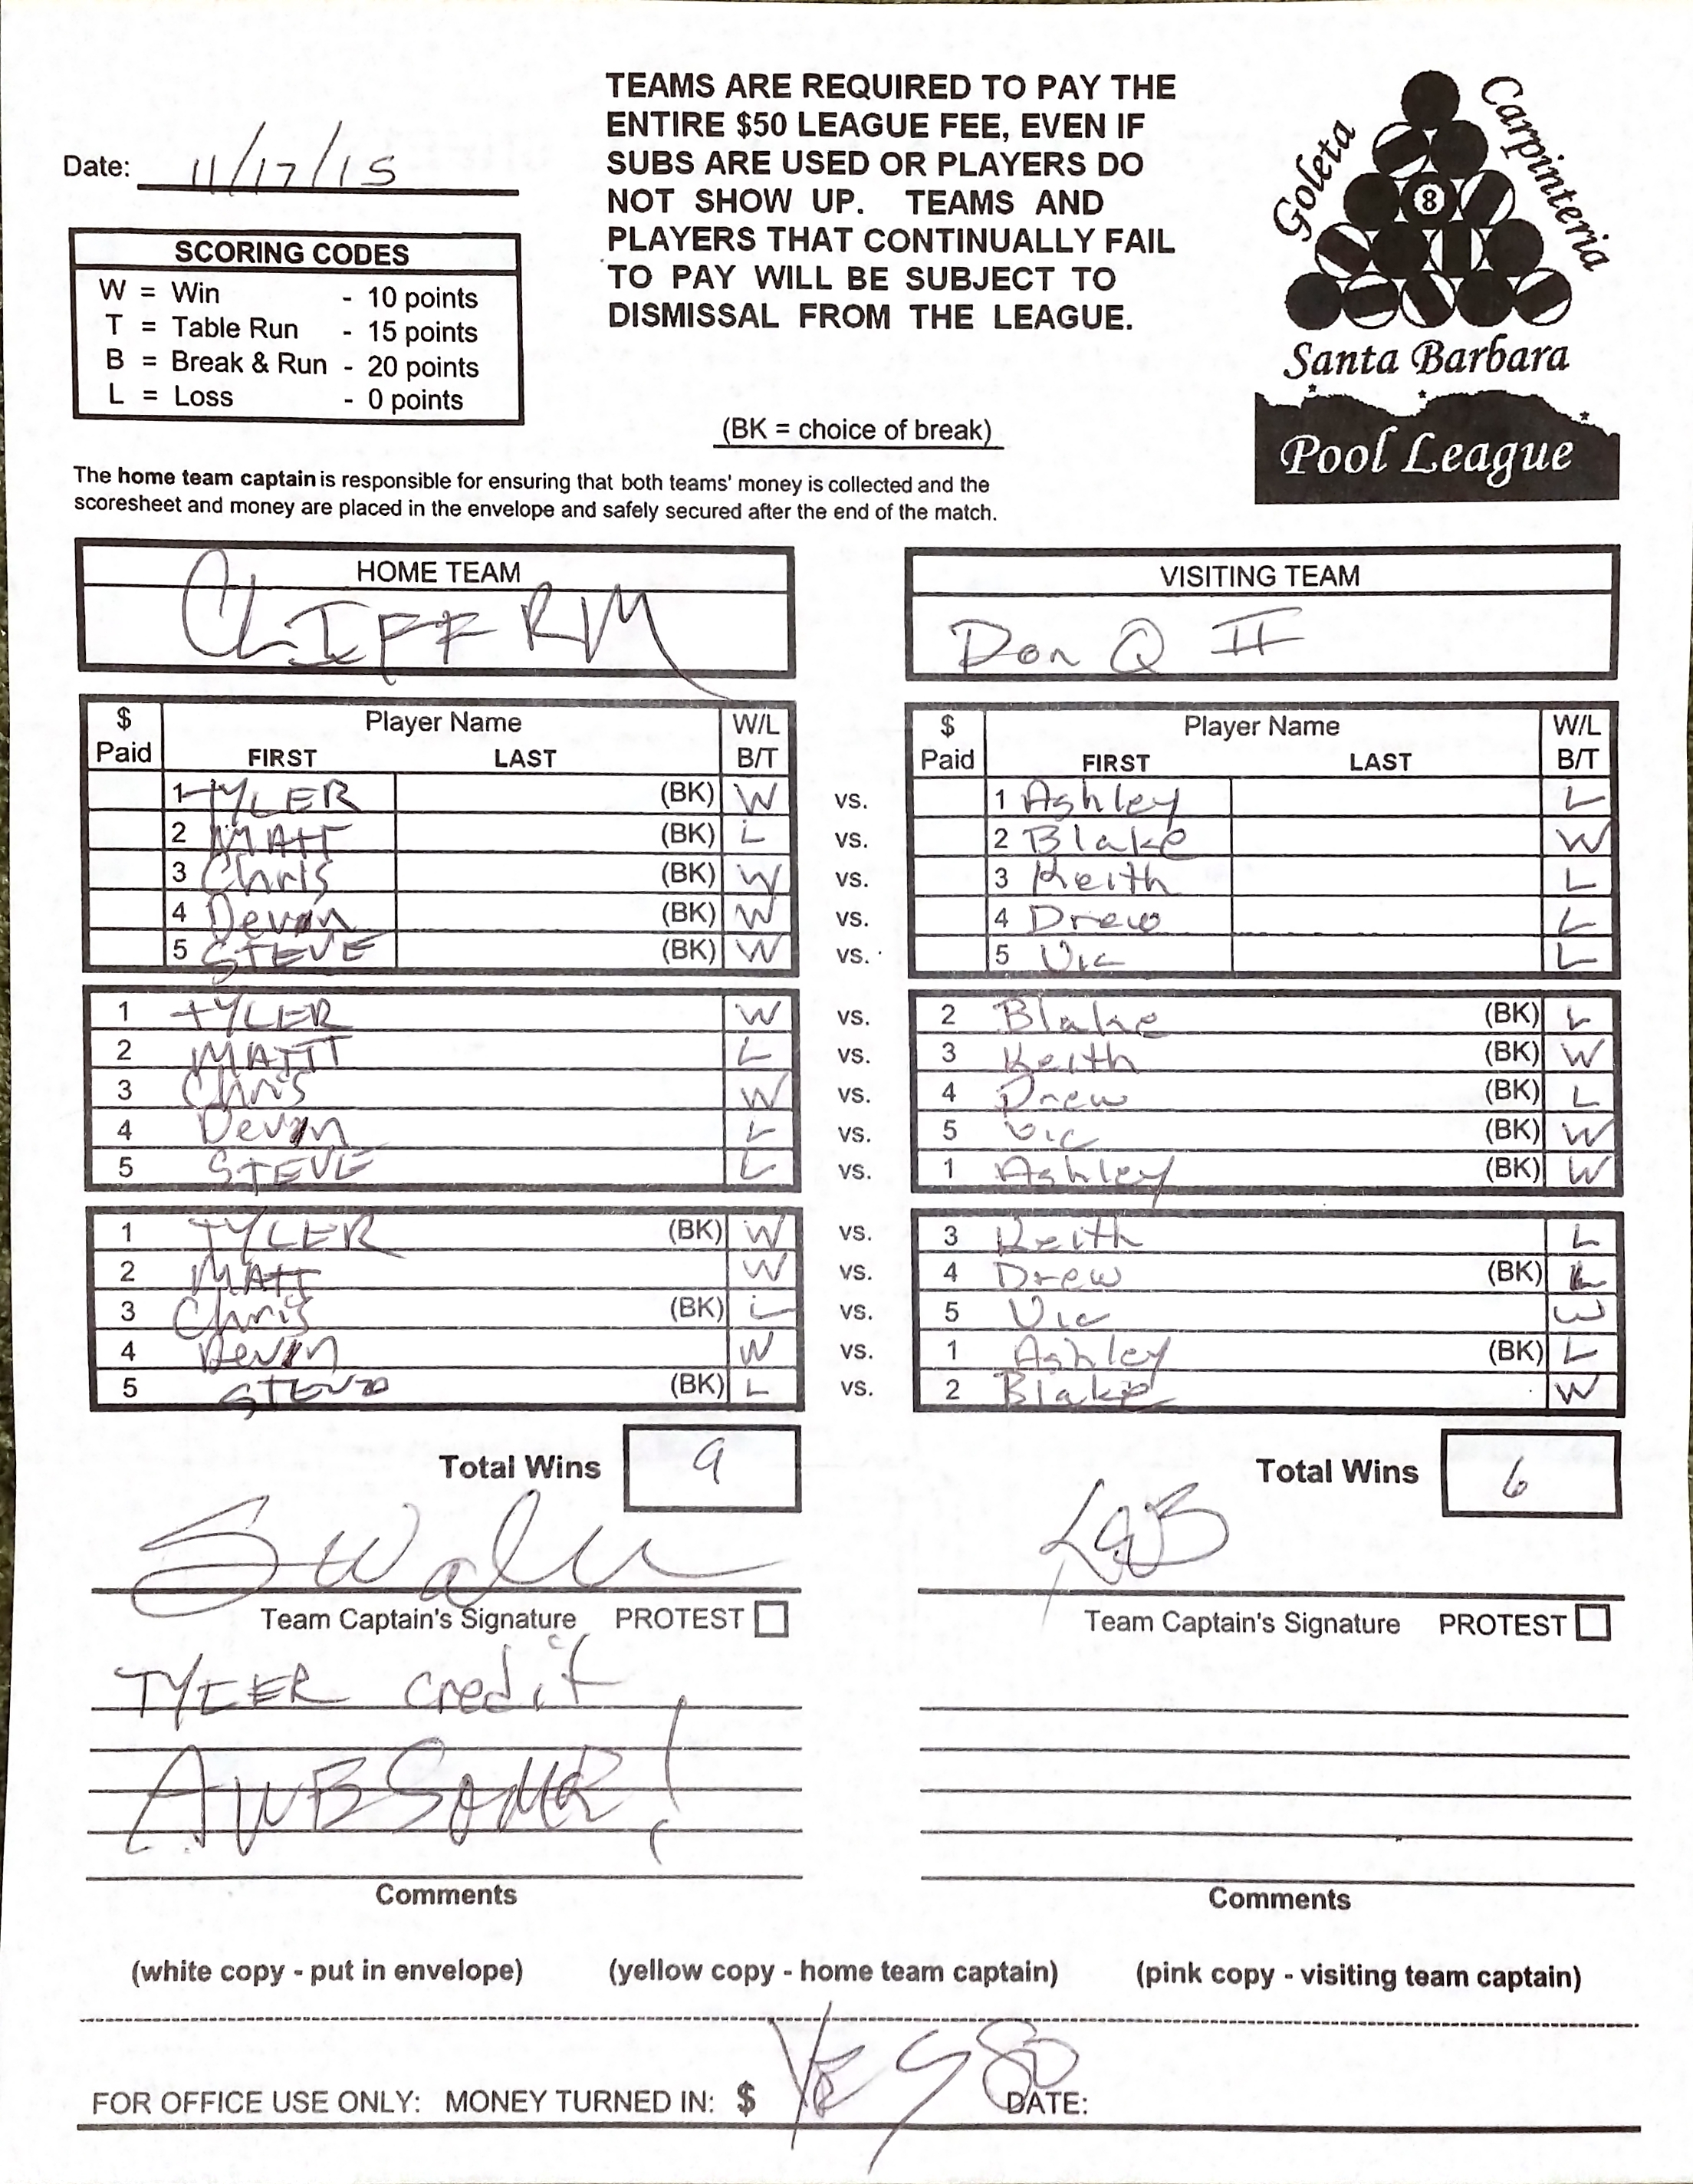 Date: 11/17/15
TEAMS ARE REQUIRED TO PAY THE
ENTIRE $50 LEAGUE FEE, EVEN IF
SUBS ARE USED OR PLAYERS DO
NOT SHOW UP. TEAMS AND
PLAYERS THAT CONTINUALLY FAIL
TO PAY WILL BE SUBJECT TO
DISMISSAL FROM THE LEAGUE.
Goleta
Carpinteria
8
Santa Barbara
Pool League
SCORING CODES
W = Win - 10 points
T = Table Run - 15 points
B = Break & Run - 20 points
L = Loss - 0 points
(BK = choice of break)
The home team captain is responsible for ensuring that both teams' money is collected and the
scoresheet and money are placed in the envelope and safely secured after the end of the match.
HOME TEAM VISITING TEAM
CLIFF RM Don Q II
$ Player Name W/L $ Player Name W/L
Paid FIRST LAST B/T Paid FIRST LAST B/T
1 TYLER (BK) W vs. 1 Ashley L
2 MATT (BK) L vs. 2 Blake W
3 Chris (BK) W vs. 3 Keith L
4 Devin (BK) W vs. 4 Drew L
5 STEVE (BK) W vs. 5 Vic L
1 TYLER W vs. 2 Blake (BK) L
2 MATT L vs. 3 Keith (BK) W
3 Chris W vs. 4 Drew (BK) L
4 Devin L vs. 5 Vic (BK) W
5 STEVE L vs. 1 Ashley (BK) W
1 TYLER (BK) W vs. 3 Keith L
2 MATT W vs. 4 Drew (BK) L
3 Chris (BK) L vs. 5 Vic W
4 Devin W vs. 1 Ashley (BK) L
5 STEVE (BK) L vs. 2 Blake W
Total Wins 9 Total Wins 6
Team Captain's Signature PROTEST Team Captain's Signature PROTEST
TYLER credit
AWESOME!
Comments Comments
(white copy - put in envelope) (yellow copy - home team captain) (pink copy - visiting team captain)
FOR OFFICE USE ONLY: MONEY TURNED IN: $ DATE: